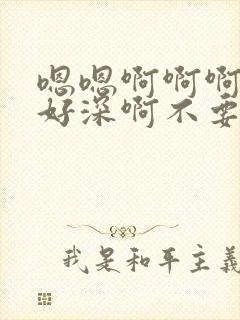 嗯嗯啊啊啊
好深啊不要
我是和平主义